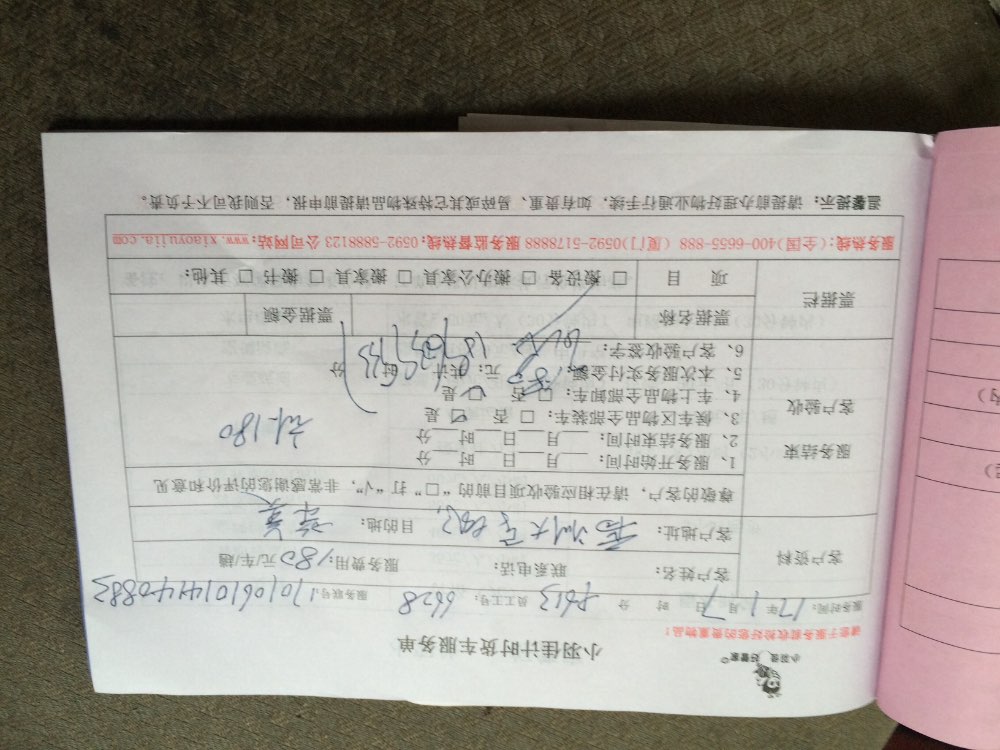 小羽佳 好管家
小羽佳计时货车服务单
请您于服务前收拾好您的贵重物品!
服务时间: 17年1月7日 时 分 P613 员工工号: 6628 服务联号: 1701061014440883
客户资料
客户姓名: 联系电话: 服务费用: 180元/车/趟
客户地址: 目的地:
尊敬的客户, 请在相应验收项目前的“□”打“√”, 非常感谢您的评价和意见
服务结束
客户验收
1、服务开始时间: ___月___日___时___分
2、服务结束时间: ___月___日___时___分
3、候车区物品全部装车: □ 否 ☑ 是
4、车上物品全部卸车: □ 否 ☑ 是
5、本次服务实付金额: 180 元; 共计 时 分
6、客户验收签字:
180
票据栏
票据名称 票据金额
项 目 □ 搬设备 □ 搬办公家具 □ 搬家具 □ 搬书 □ 其他:
服务热线:(全国)400-6655-888 (厦门)0592-5178888 服务监督热线:0592-5888123 公司网站:www.xiaoyujia.com
温馨提示: 请提前办理好物业通行手续, 如有贵重、易碎或其它特殊物品请提前申报, 否则我司不予负责。